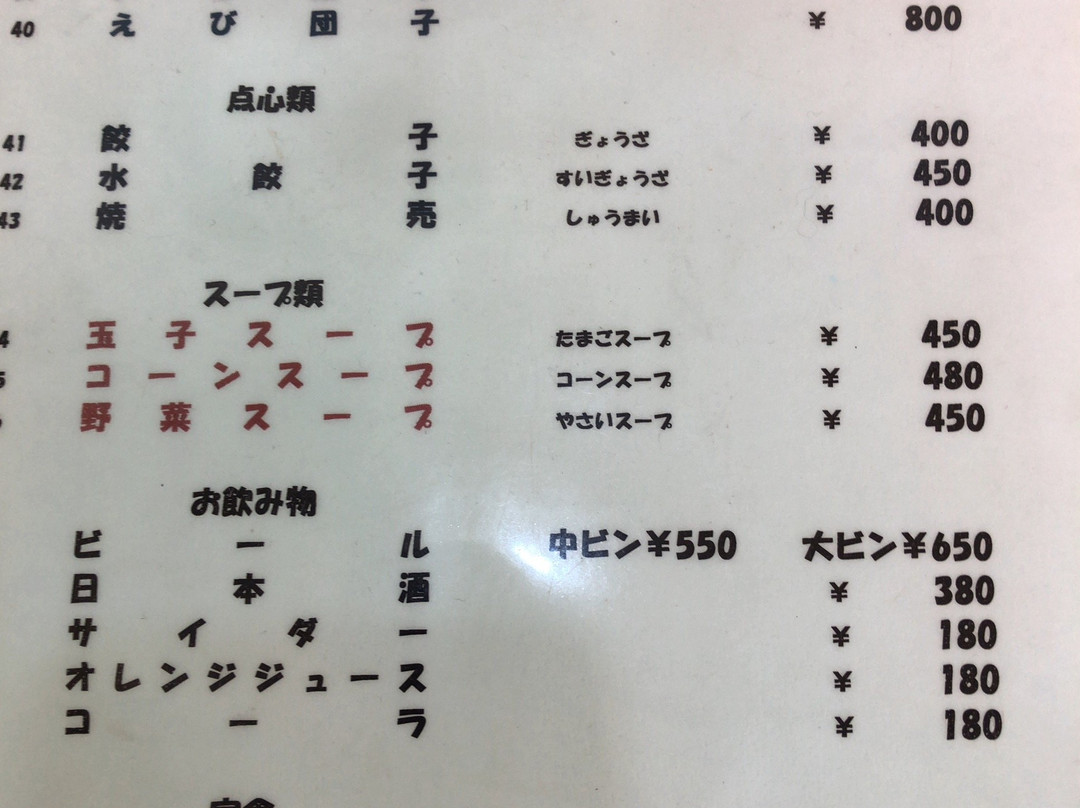 40 えび団子 ¥ 800
点心類
41 餃子 ぎょうざ ¥ 400
42 水餃子 すいぎょうざ ¥ 450
43 焼売 しゅうまい ¥ 400
スープ類
4 玉子スープ たまごスープ ¥ 450
5 コーンスープ コーンスープ ¥ 480
野菜スープ やさいスープ ¥ 450
お飲み物
ビール 中ビン¥550 大ビン¥650
日本酒 ¥ 380
サイダー ¥ 180
オレンジジュース ¥ 180
コーラ ¥ 180